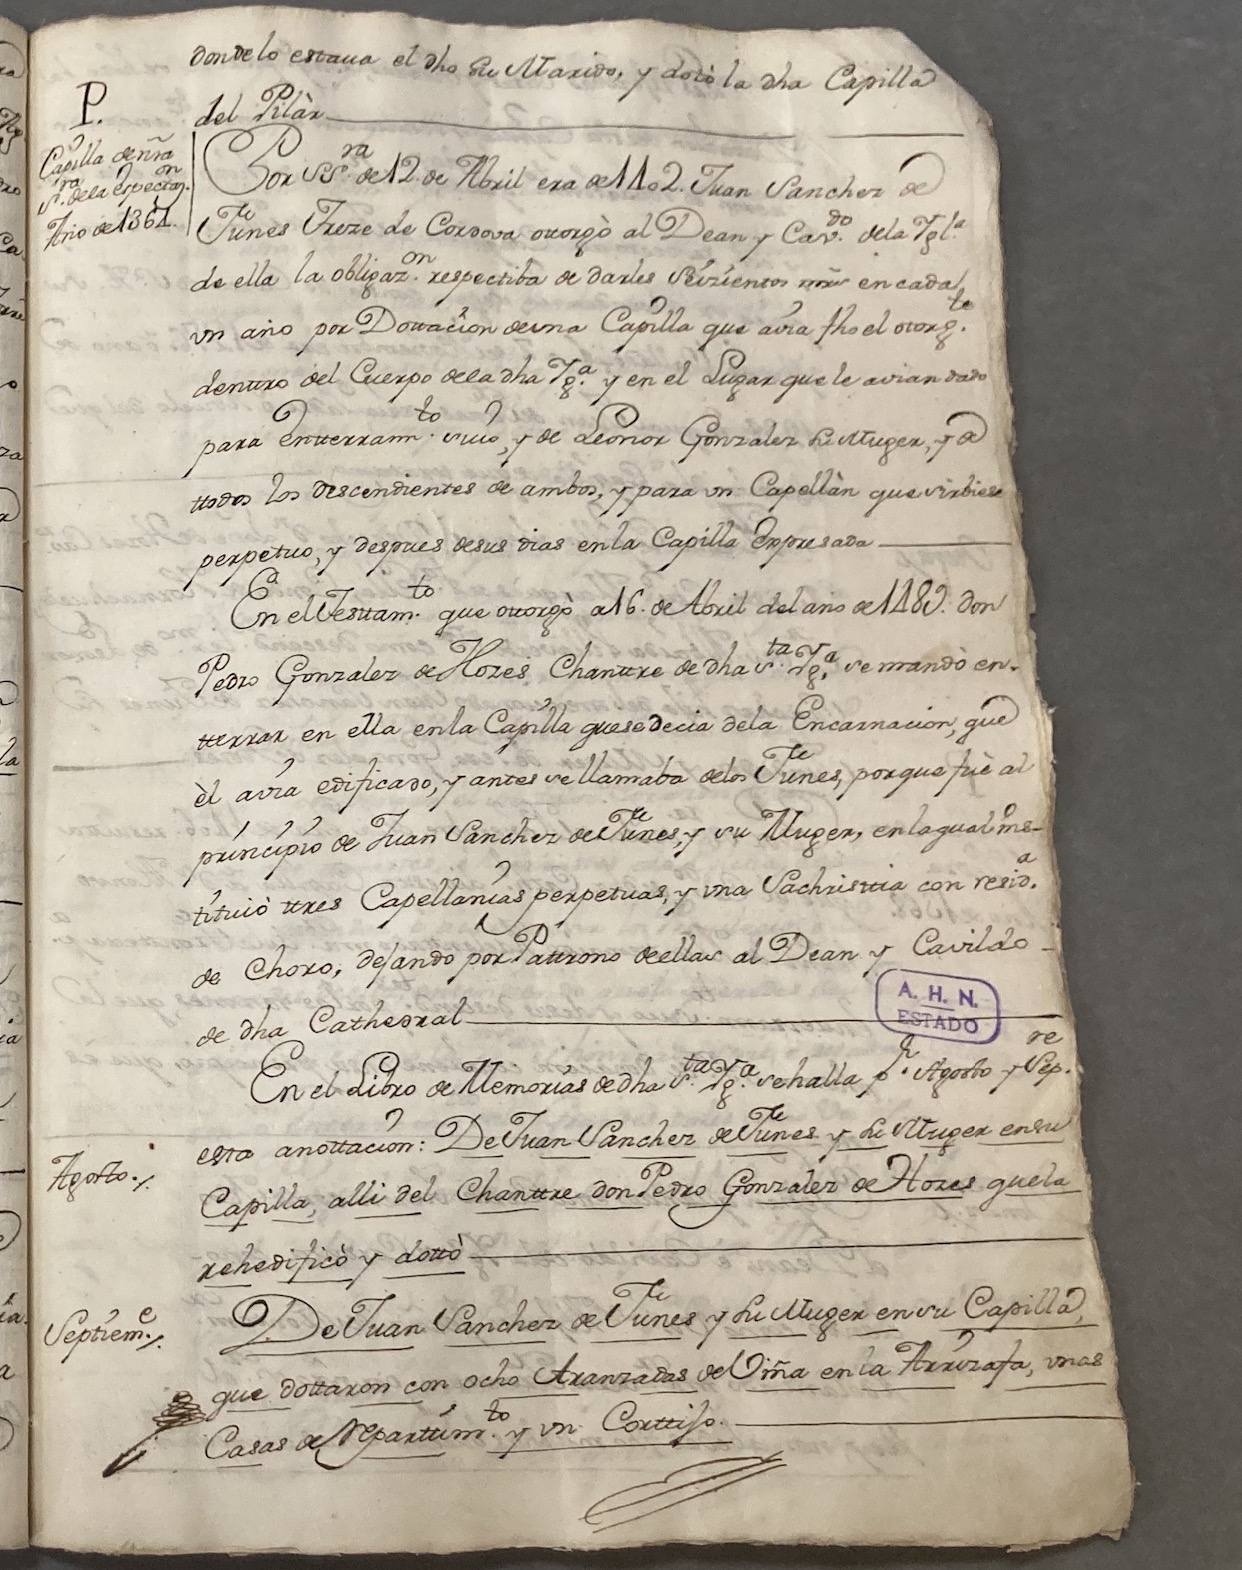 donde lo estaua el dho su Marido, y dotò la dha Capilla
del Pilàr
P.
Capilla de ñra
Sra. de la Espectaz.on
Año de 1364.
Por SSra. de 12 de Abril era de 1402. Juan Sanchez de
Funes Treze de Cordova ottorgò al Dean y Cavdo. de la Iglª
de ella la obligazon. respectiba de darles Seizientos mrs en cada
vn año por Dottacion de vna Capilla que avia fho el otorgte.
dentro del Cuerpo de la dha Igª. y en el Lugar que le avian dado
para Entterramto. suio, y de Leonor Gonzalez su Muger, y de
ttodos los descendientes de ambos, y para vn Capellàn que sirbiese
perpetuo, y despues de sus dias en la Capilla Expresada
En el Testtamto. que ottorgò a 16. de Abril del año de 1489. don
Pedro Gonzalez de Hozes Chanttre de dha Sta. Igª. se mandò en-
tterrar en ella en la Capilla que se decia de la Encarnacion, que
èl avia edificado, y antes se llamaba de los Funes, porque fuè al
principio de Juan Sanchez de Funes, y su Muger, en la qual ins-
tituiò ttres Capellanias perpetuas, y vna Sachristtia con residª.
de Choro, dejando por Pattrono de ellas al Dean y Cavildo
de dha Cathedral
A. H. N.
ESTADO
En el Libro de Memorias de dha Sta. Igª. se halla pr. Agosto y Sepre.
esta anottacion: De Juan Sanchez de Funes y su Muger en su
Agosto./.
Capilla, alli del Chanttre don Pedro Gonzalez de Hozes que la
rehedificò y dottò
Septieme./.
De Juan Sanchez de Funes y su Muger en su Capilla,
que dottaron con ocho Aranzadas de Viña en la Arrizafa, vnas
Casas de Reparttimto. y vn Corttijo.